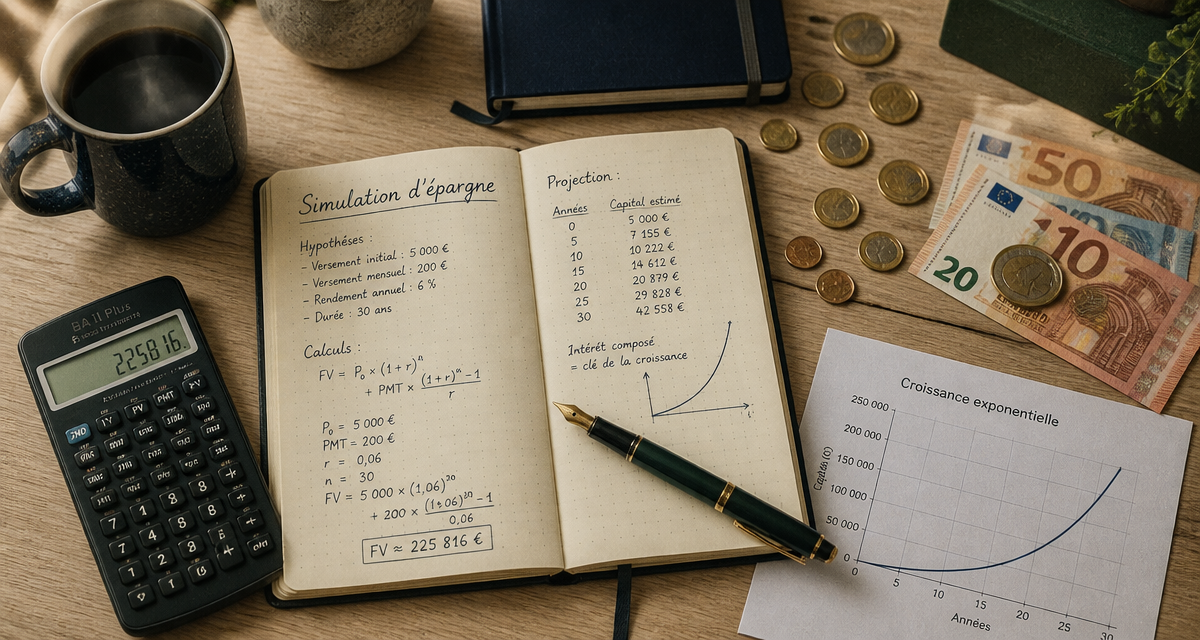 Simulation d'épargne
Hypothéses :
- Versement initial : 5 000 €
- Versement mensuel : 200 €
- Rendement annuel : 6 %
- Durée : 30 ans
Calculs :
FV = P₀ × (1+r)ⁿ
+ PMT × (1+r)ⁿ - 1
r
P₀ = 5 000 €
PMT = 200 €
r = 0,06
n = 30
FV = 5 000 × (1,06)³⁰
+ 200 × (1,06)³⁰ - 1
0,06
FV ≈ 225 816 €
Projection :
Années Capital estimé
0 5 000 €
5 7 155 €
10 10 222 €
15 14 612 €
20 20 879 €
25 29 828 €
30 42 558 €
Intérêt composé
= clé de la croissance
BA II Plus
225816.
50
10
20
Croissance exponentielle
250 000
200 000
150 000
100 000
50 000
0
0 5 10 15 20 25 30
Années